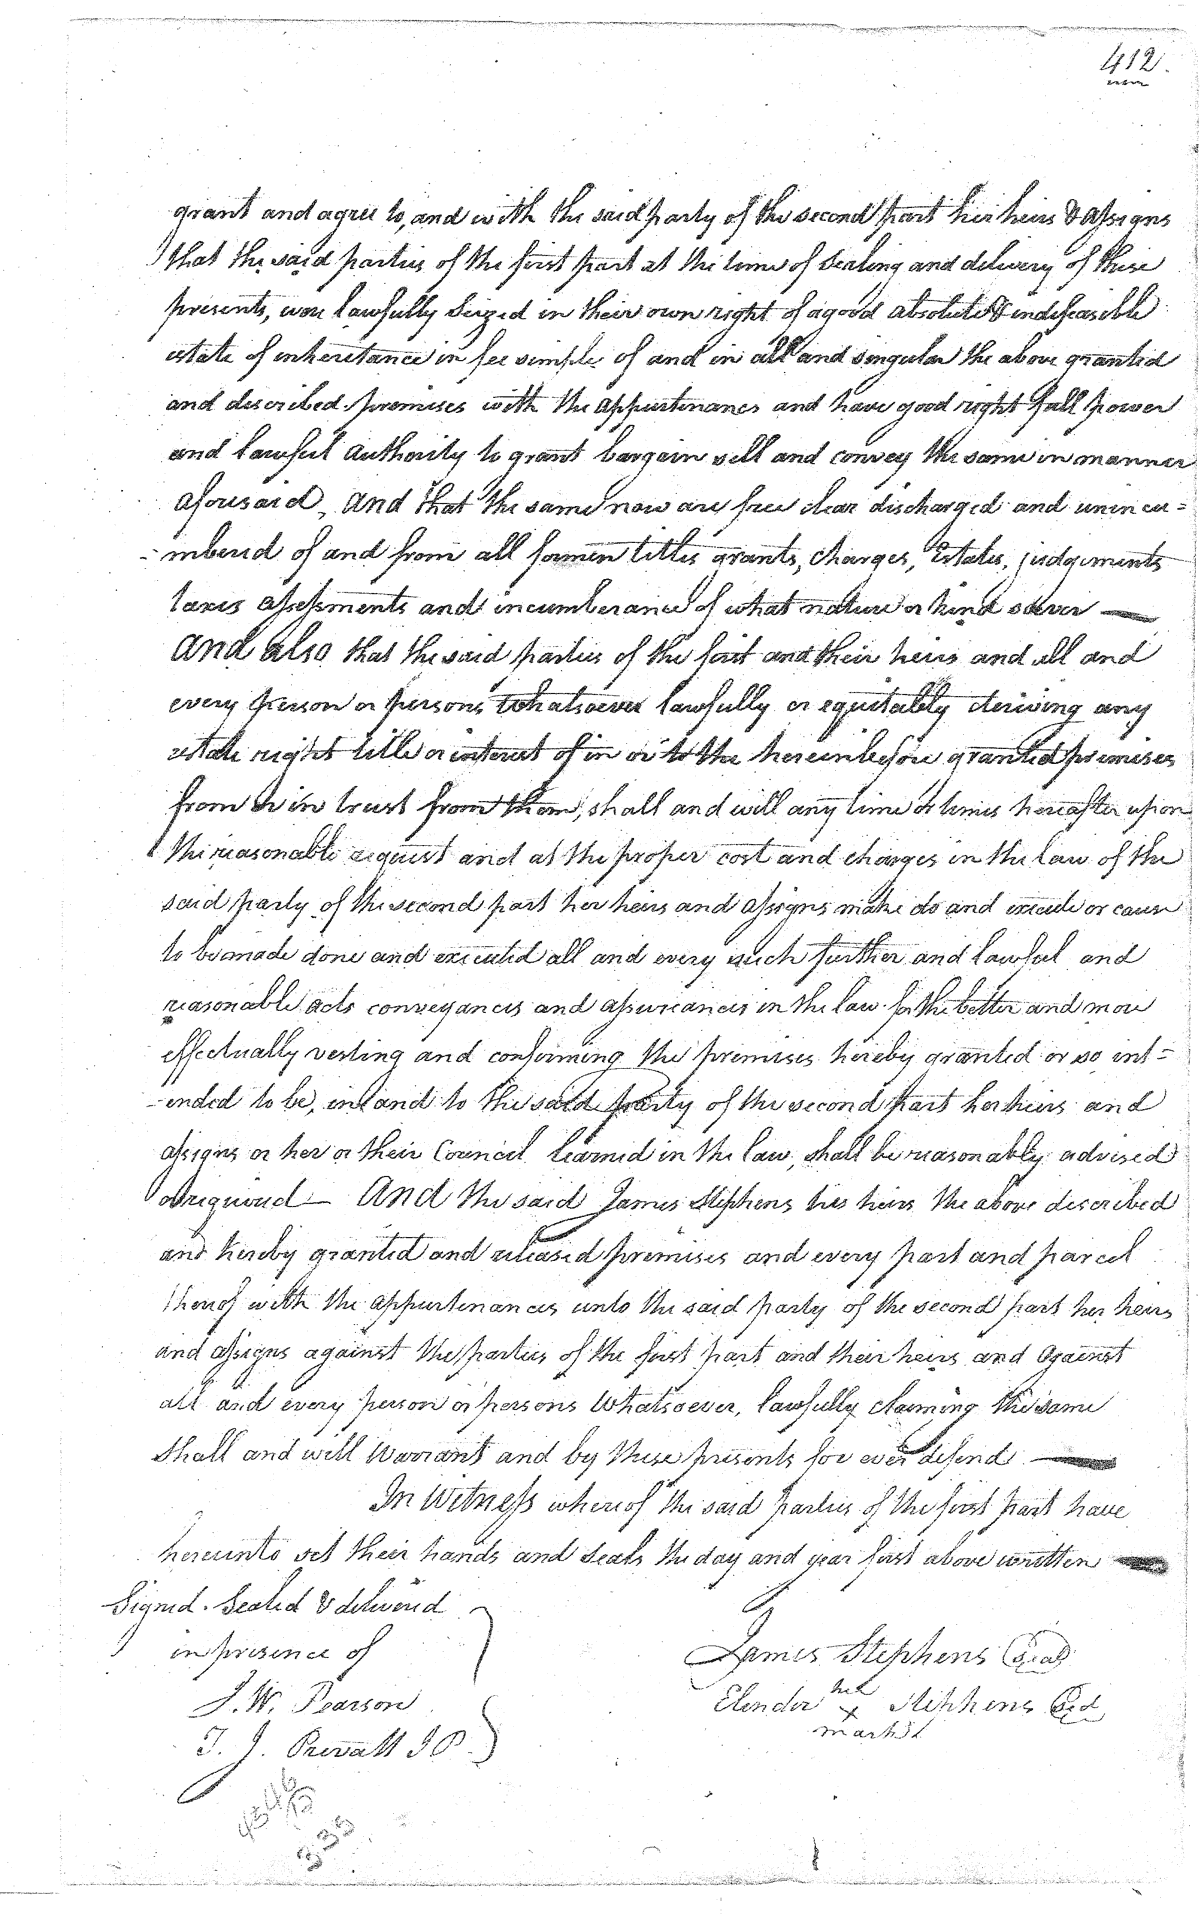 412.
grant and agree to, and with the said party of the second part her heirs & assigns
that the said parties of the first part at the time of Sealing and delivery of these
presents, were lawfully Seized in their own right of a good absolute & indefeasible
estate of inheretance in fee simple of and in all and singular the above granted
and described premises with the appurtenances and have good right full power
and lawful Authority to grant bargain sell and convey the same in manner
aforesaid, and that the same now are free clear discharged and unincu=
-mberd of and from all former titles grants, charges, Estates, judgements
taxes assessments and incumberance of what nature or kind soever —
And also that the said parties of the first and their heirs and all and
every person or persons whatsoever lawfully or equitably deriving any
estate right title or interest of in or to the hereinbefore granted premises
from or in trust from them, shall and will any time or times hereafter upon
the reasonable request and at the proper cost and charges in the law of the
said party of the second part her heirs and assigns make do and execute or cause
to be made done and executed all and every such further and lawful and
reasonable acts conveyances and assurances in the law for the better and more
effectually vesting and conforming the premises hereby granted or so int=
-ended to be, in and to the said party of the second part her heirs and
assigns or her or their Council learned in the law, shall be reasonably advised
or required — And the said James Stephens his heirs the above described
and hereby granted and released premises and every part and parcel
thereof with the appurtenances unto the said party of the second part her heirs
and assigns against the parties of the first part and their heirs and against
all and every person or persons Whatsoever, lawfully claiming the same
shall and will Warrant and by these presents for ever defend —
In Witness whereof the said parties of the first part have
hereunto set their hands and Seals the day and year first above written —
Signed. Sealed & deliverd
in presence of
James Stephens Seal
J. W. Pearson
her
Elender x Stephens Sed
mark
T. J. Prevatt J P